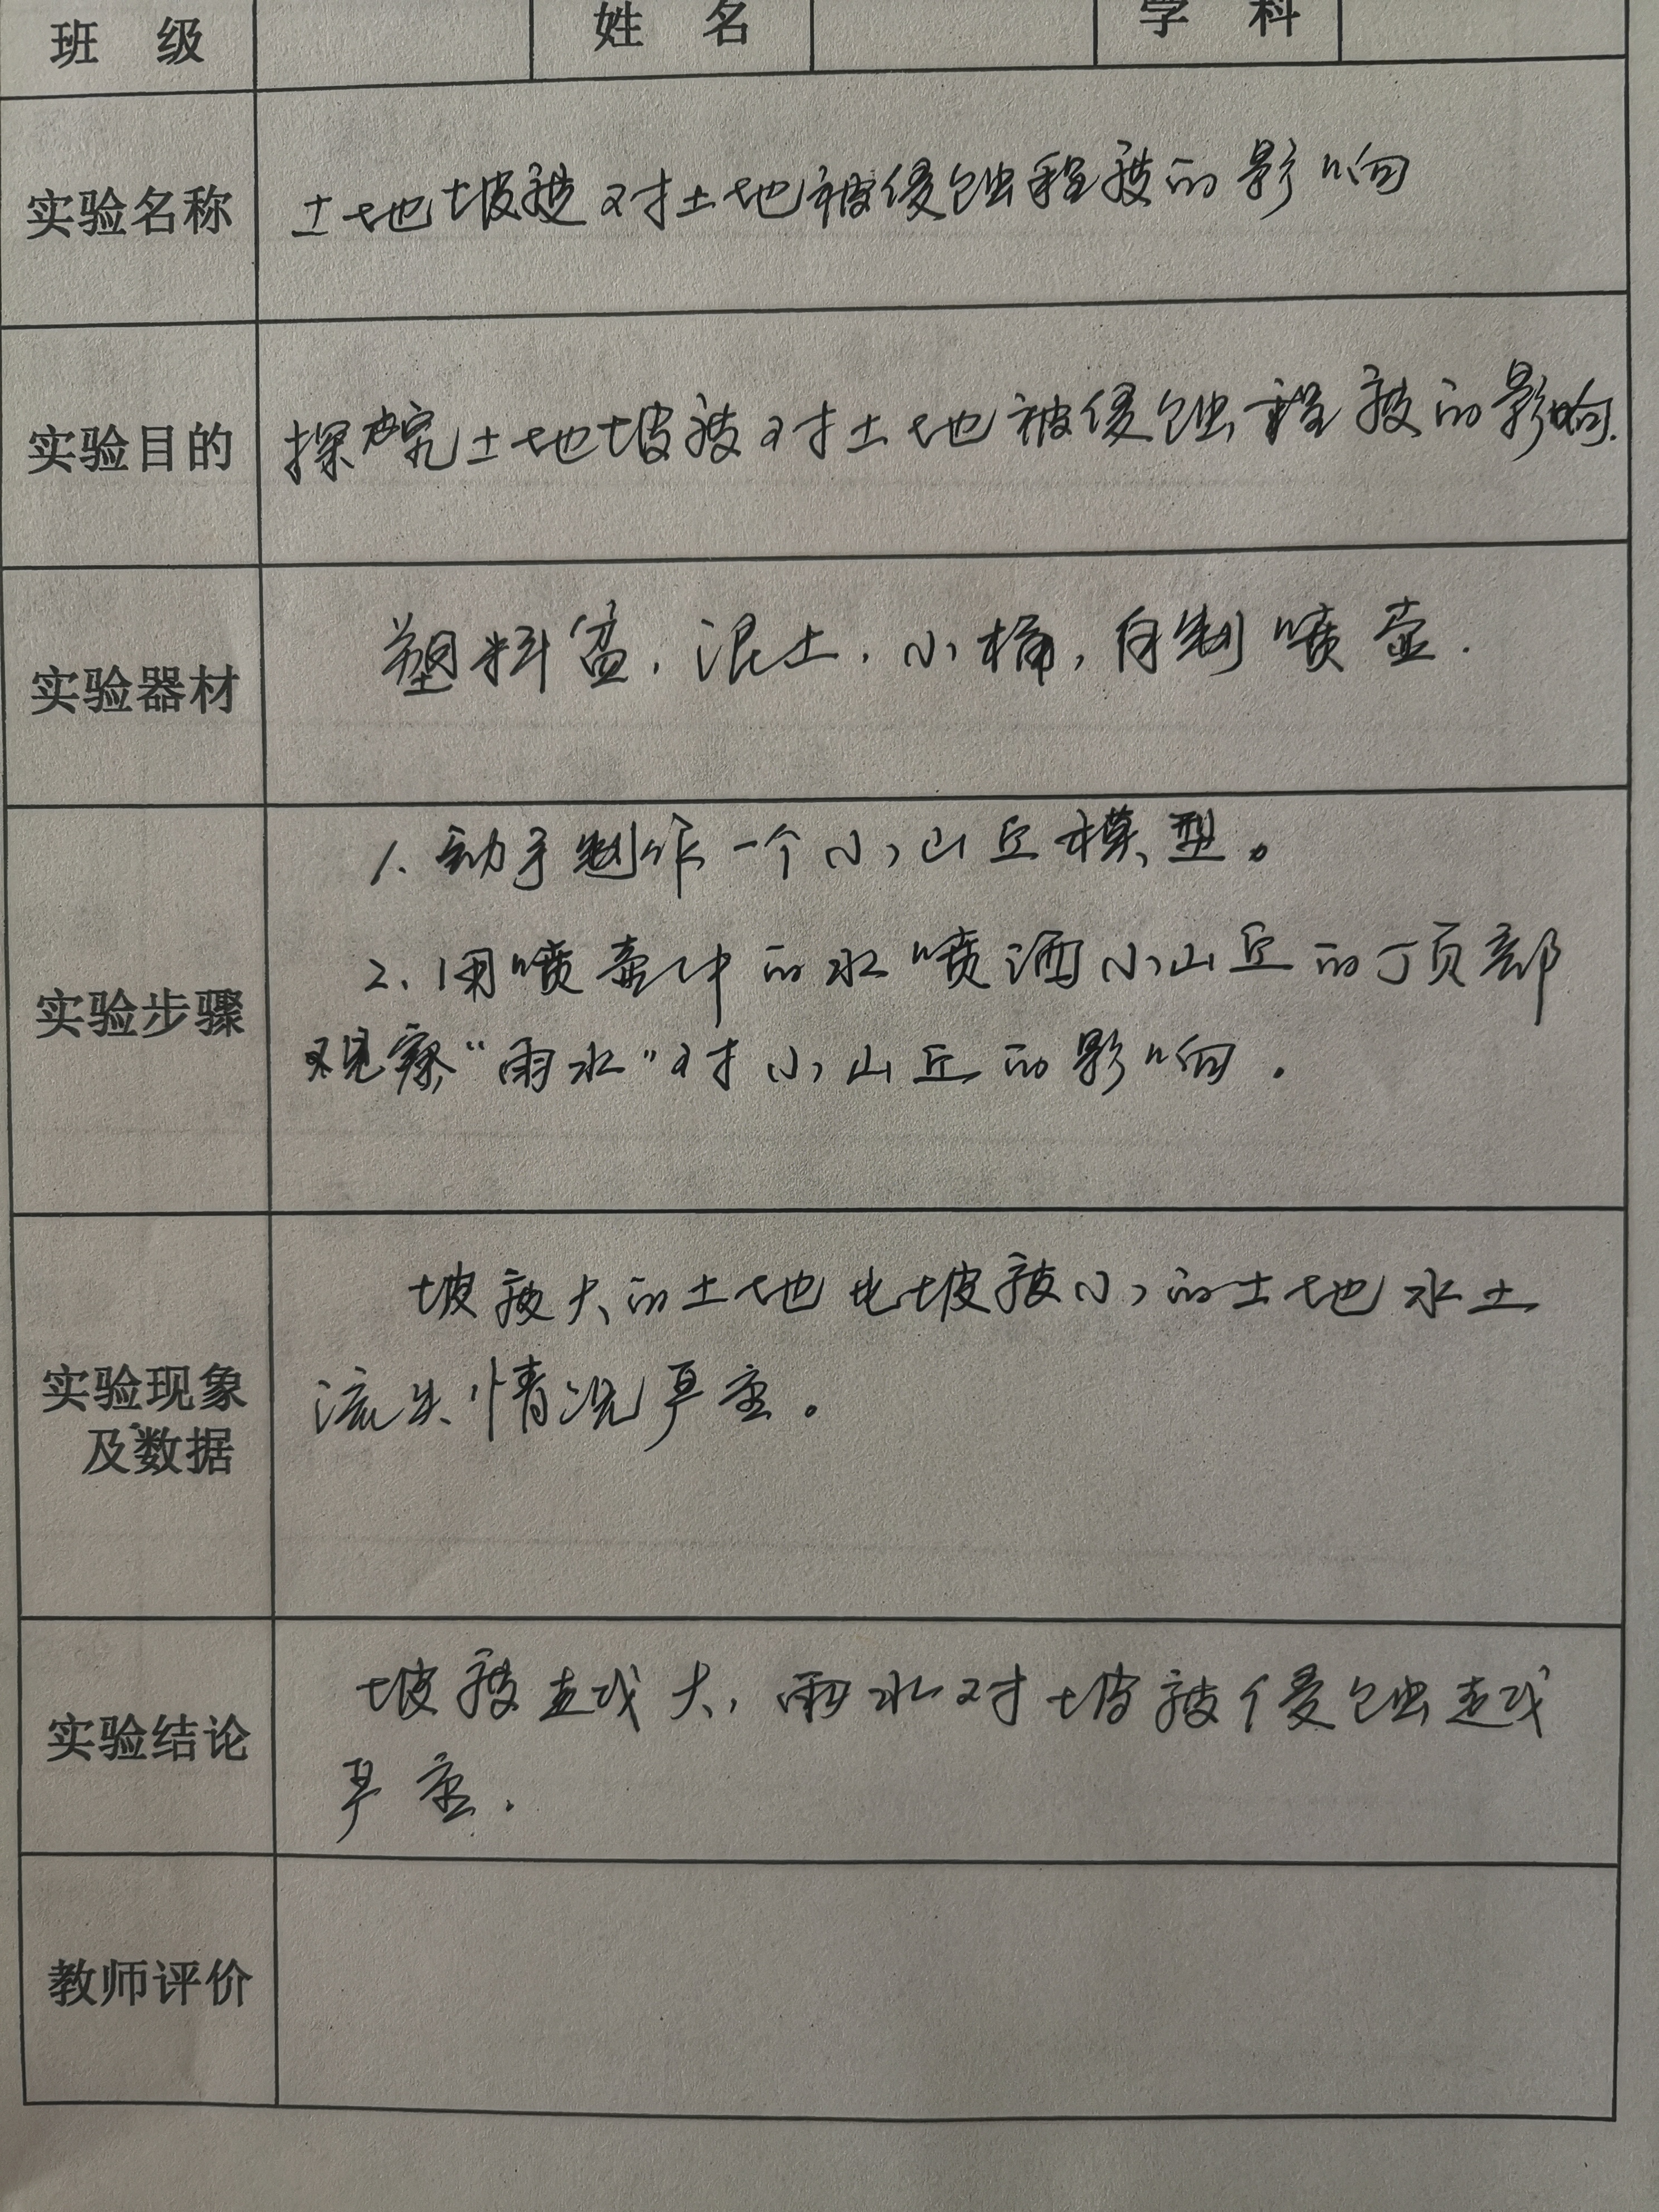 班 级 姓 名 学 科
实验名称 土地坡度对土地被侵蚀程度的影响
实验目的 探究土地坡度对土地被侵蚀程度的影响.
实验器材 塑料盆,泥土,小桶,自制喷壶.
1、动手制作一个小山丘模型。
2、用喷壶中的水喷洒小山丘的顶部
实验步骤
观察“雨水”对小山丘的影响.
坡度大的土地比坡度小的土地水土
流失情况严重。
实验现象
及数据
坡度越大,雨水对坡度侵蚀越
实验结论
严重.
教师评价